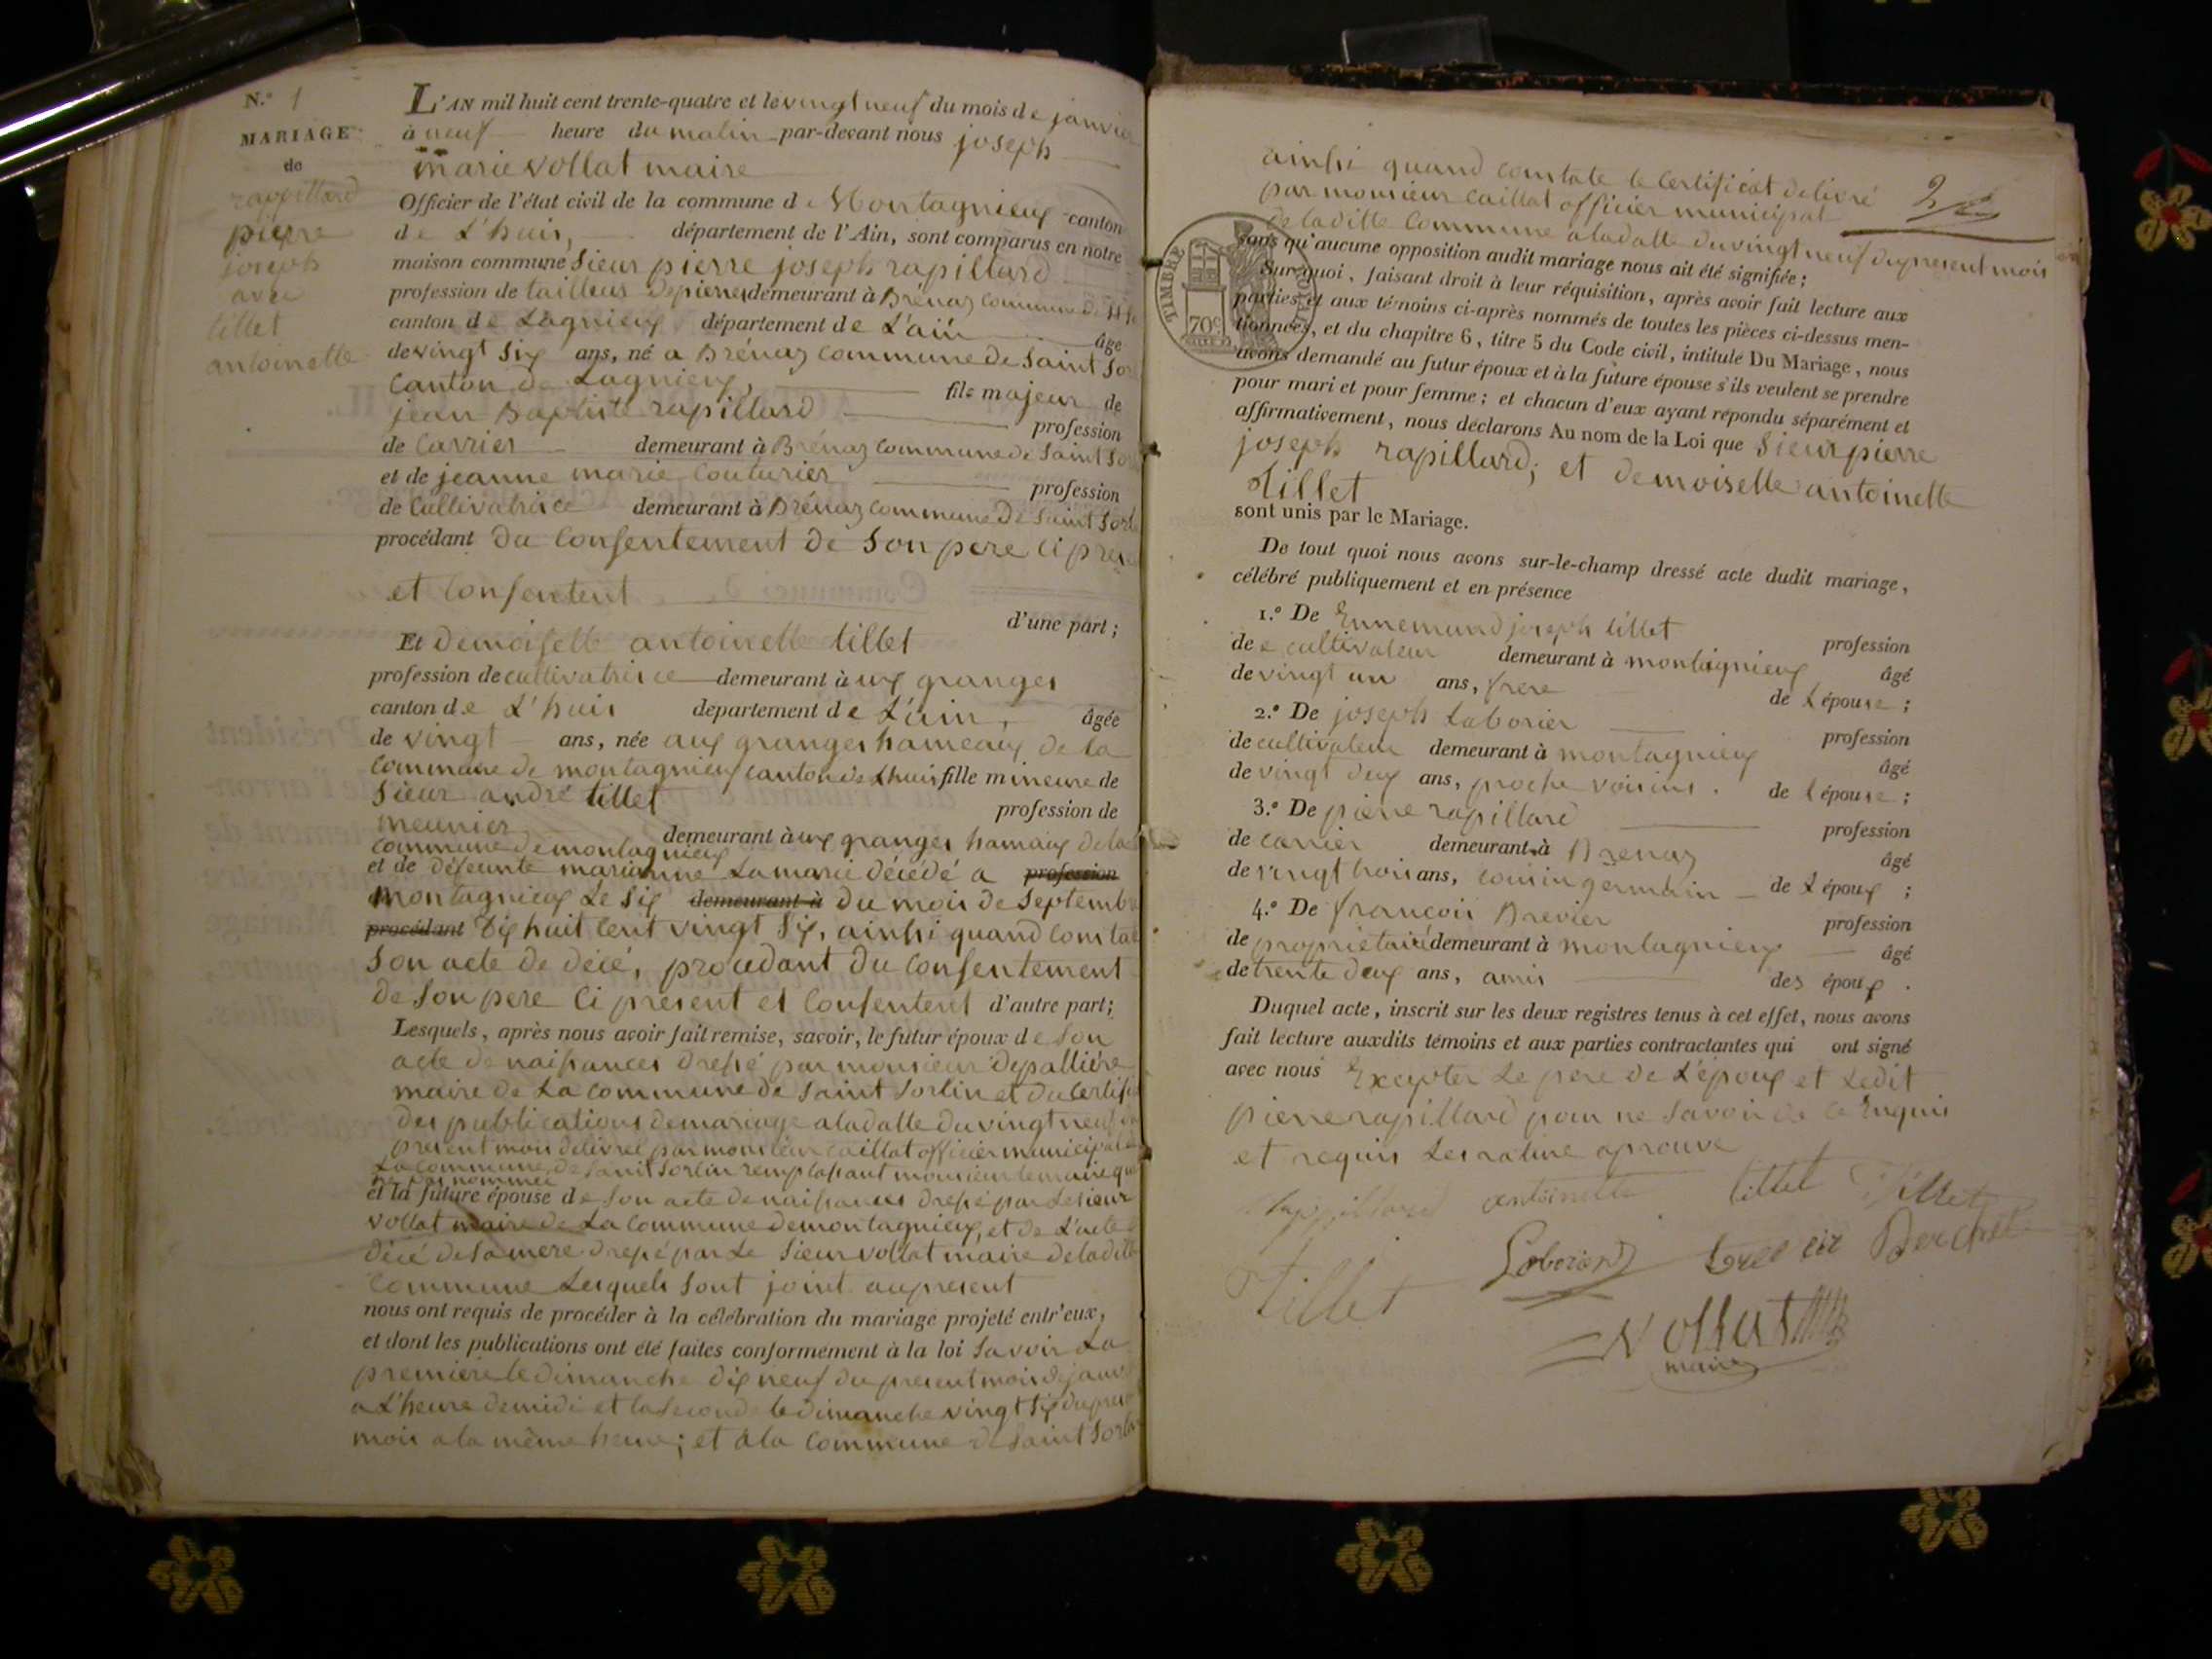 N.o 1
MARIAGE
de
rappillard
pierre
joseph
avec
tillet
antoinette
L'AN mil huit cent trente-quatre et le vingt neuf du mois de janvier
à neuf heure du matin par-devant nous joseph
marie vollat maire
Officier de l'état civil de la commune de Montagnieux canton
de L'huis, département de l'Ain, sont comparus en notre
maison commune Sieur pierre joseph rapillard
profession de tailleur de pierres demeurant à Brénaz commune de
canton de Lagnieux département de L'ain âgé
de vingt Six ans, né a Brénaz commune de Saint Sor
Canton de Lagnieux, fils majeur de
jean Baptiste rapillard profession
de Carrier demeurant à Brénaz commune de Saint Sor
et de jeanne marie Couturier profession
de Cultivatrice demeurant à Brénaz commune de Saint Sorl
procédant du Consentement de Son pere ci pres
et Consentent d'une part;
Et demoiselle antoinette tillet
profession de cultivatrice demeurant à ux granges
canton de L'huis département de L'ain, âgée
de vingt ans, née aux granges hameaux de la
commune de montagnieux canton de Lhuis fille mineure de
Sieur andré tillet profession de
meunier demeurant à ux granges hamaux de la
commune de montagnieux
et de défeunte marianne Lamarie décédé a profession
montagnieux Le Six demeurant à du mois de Septembre
procédant dix huit cent vingt Six, ainsi quand constate
Son acte de décé, procedant du Consentement
de Son pere Ci present et Consentent d'autre part;
Lesquels, après nous avoir fait remise, savoir, le futur époux de Son
acte de naissances dressé par monsieur depallière
maire de La commune de Saint Sorlin et du certifi
des publications de mariage a la datte du vingt neuf du
present mois délivrel par monsieur caillat officier municipal de
La commune de Saint Sorlin remplassant monsieur le maire que
ne pas nommée
et la future épouse de Son acte de naissances dressé par Le sieur
vollat maire de La commune de montagnieux, et de L'acte de
décé de Sa mere dressé par Le Sieur vollat maire de la ditte
Commune Lesquels Sont joint au present
nous ont requis de procéder à la célébration du mariage projeté entr'eux,
et dont les publications ont été faites conformément à la loi Savoir La
premiere le dimanche dix neuf du present mois de janv
a L'heure de midi et la Seconde le dimanche vingt Six du pres
mois a la même heure; et à la Commune de Saint Sorlin
ainsi quand constate le Certificat delivré
par monsieur caillat officier municipal
de la ditte Commune a la datte du vingt neuf du present mois
TIMBRE ROYAL
70c
sans qu'aucune opposition audit mariage nous ait été signifiée;
Sur quoi, faisant droit à leur réquisition, après avoir fait lecture aux
parties et aux témoins ci-après nommés de toutes les pièces ci-dessus men-
tionnées, et du chapitre 6, titre 5 du Code civil, intitulé Du Mariage, nous
avons demandé au futur époux et à la future épouse s'ils veulent se prendre
pour mari et pour femme; et chacun d'eux ayant répondu séparément et
affirmativement, nous déclarons Au nom de la Loi que Sieur pierre
joseph rapillard; et demoiselle antoinette
tillet
sont unis par le Mariage.
De tout quoi nous avons sur-le-champ dressé acte dudit mariage,
célébré publiquement et en présence
1.o De Ennemund joseph tillet profession
de cultivateur demeurant à montagnieux âgé
de vingt un ans, frere de L'épouse;
2.o De joseph Laborier profession
de cultivateur demeurant à montagnieux âgé
de vingt deux ans, proche voisins. de l'épouse;
3.o De pierre rapillard profession
de carrier demeurant à Brenaz âgé
de vingt trois ans, cousin germain de L'époux;
4.o De françois Brevier profession
de propriétaire demeurant à montagnieux âgé
de trente deux ans, amis des époux.
Duquel acte, inscrit sur les deux registres tenus à cet effet, nous avons
fait lecture auxdits témoins et aux parties contractantes qui ont signé
avec nous Excepter Le pere de L'époux et Ledit
pierre rapillard pour ne Savoir de ce Enquis
et requis Les rature aprouve
Rappillard antoinette tillet Tillet
Tillet Laborier Berchet
Vollat
maire